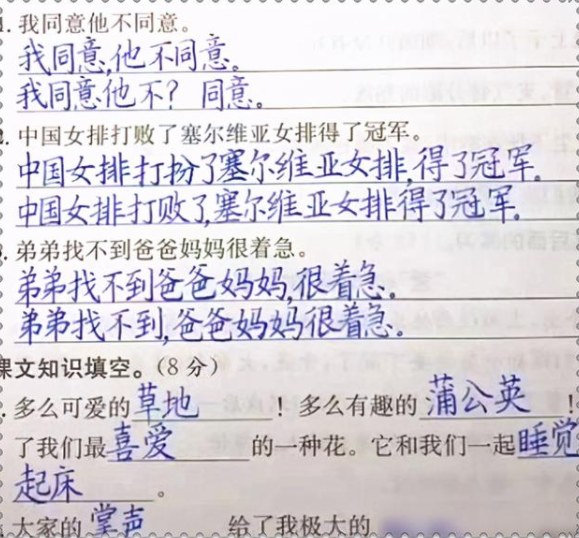 1. 我同意他不同意。
我同意,他不同意。
我同意他不? 同意。
2. 中国女排打败了塞尔维亚女排得了冠军。
中国女排打扮了塞尔维亚女排,得了冠军.
中国女排打败了,塞尔维亚女排得了冠军.
弟弟找不到爸爸妈妈很着急。
弟弟找不到爸爸妈妈,很着急。
弟弟找不到,爸爸妈妈很着急。
课文知识填空。(8分)
多么可爱的草地,多么有趣的蒲公英!
了我们最喜爱的一种花。它和我们一起睡觉
起床。
大家的掌声给了我极大的